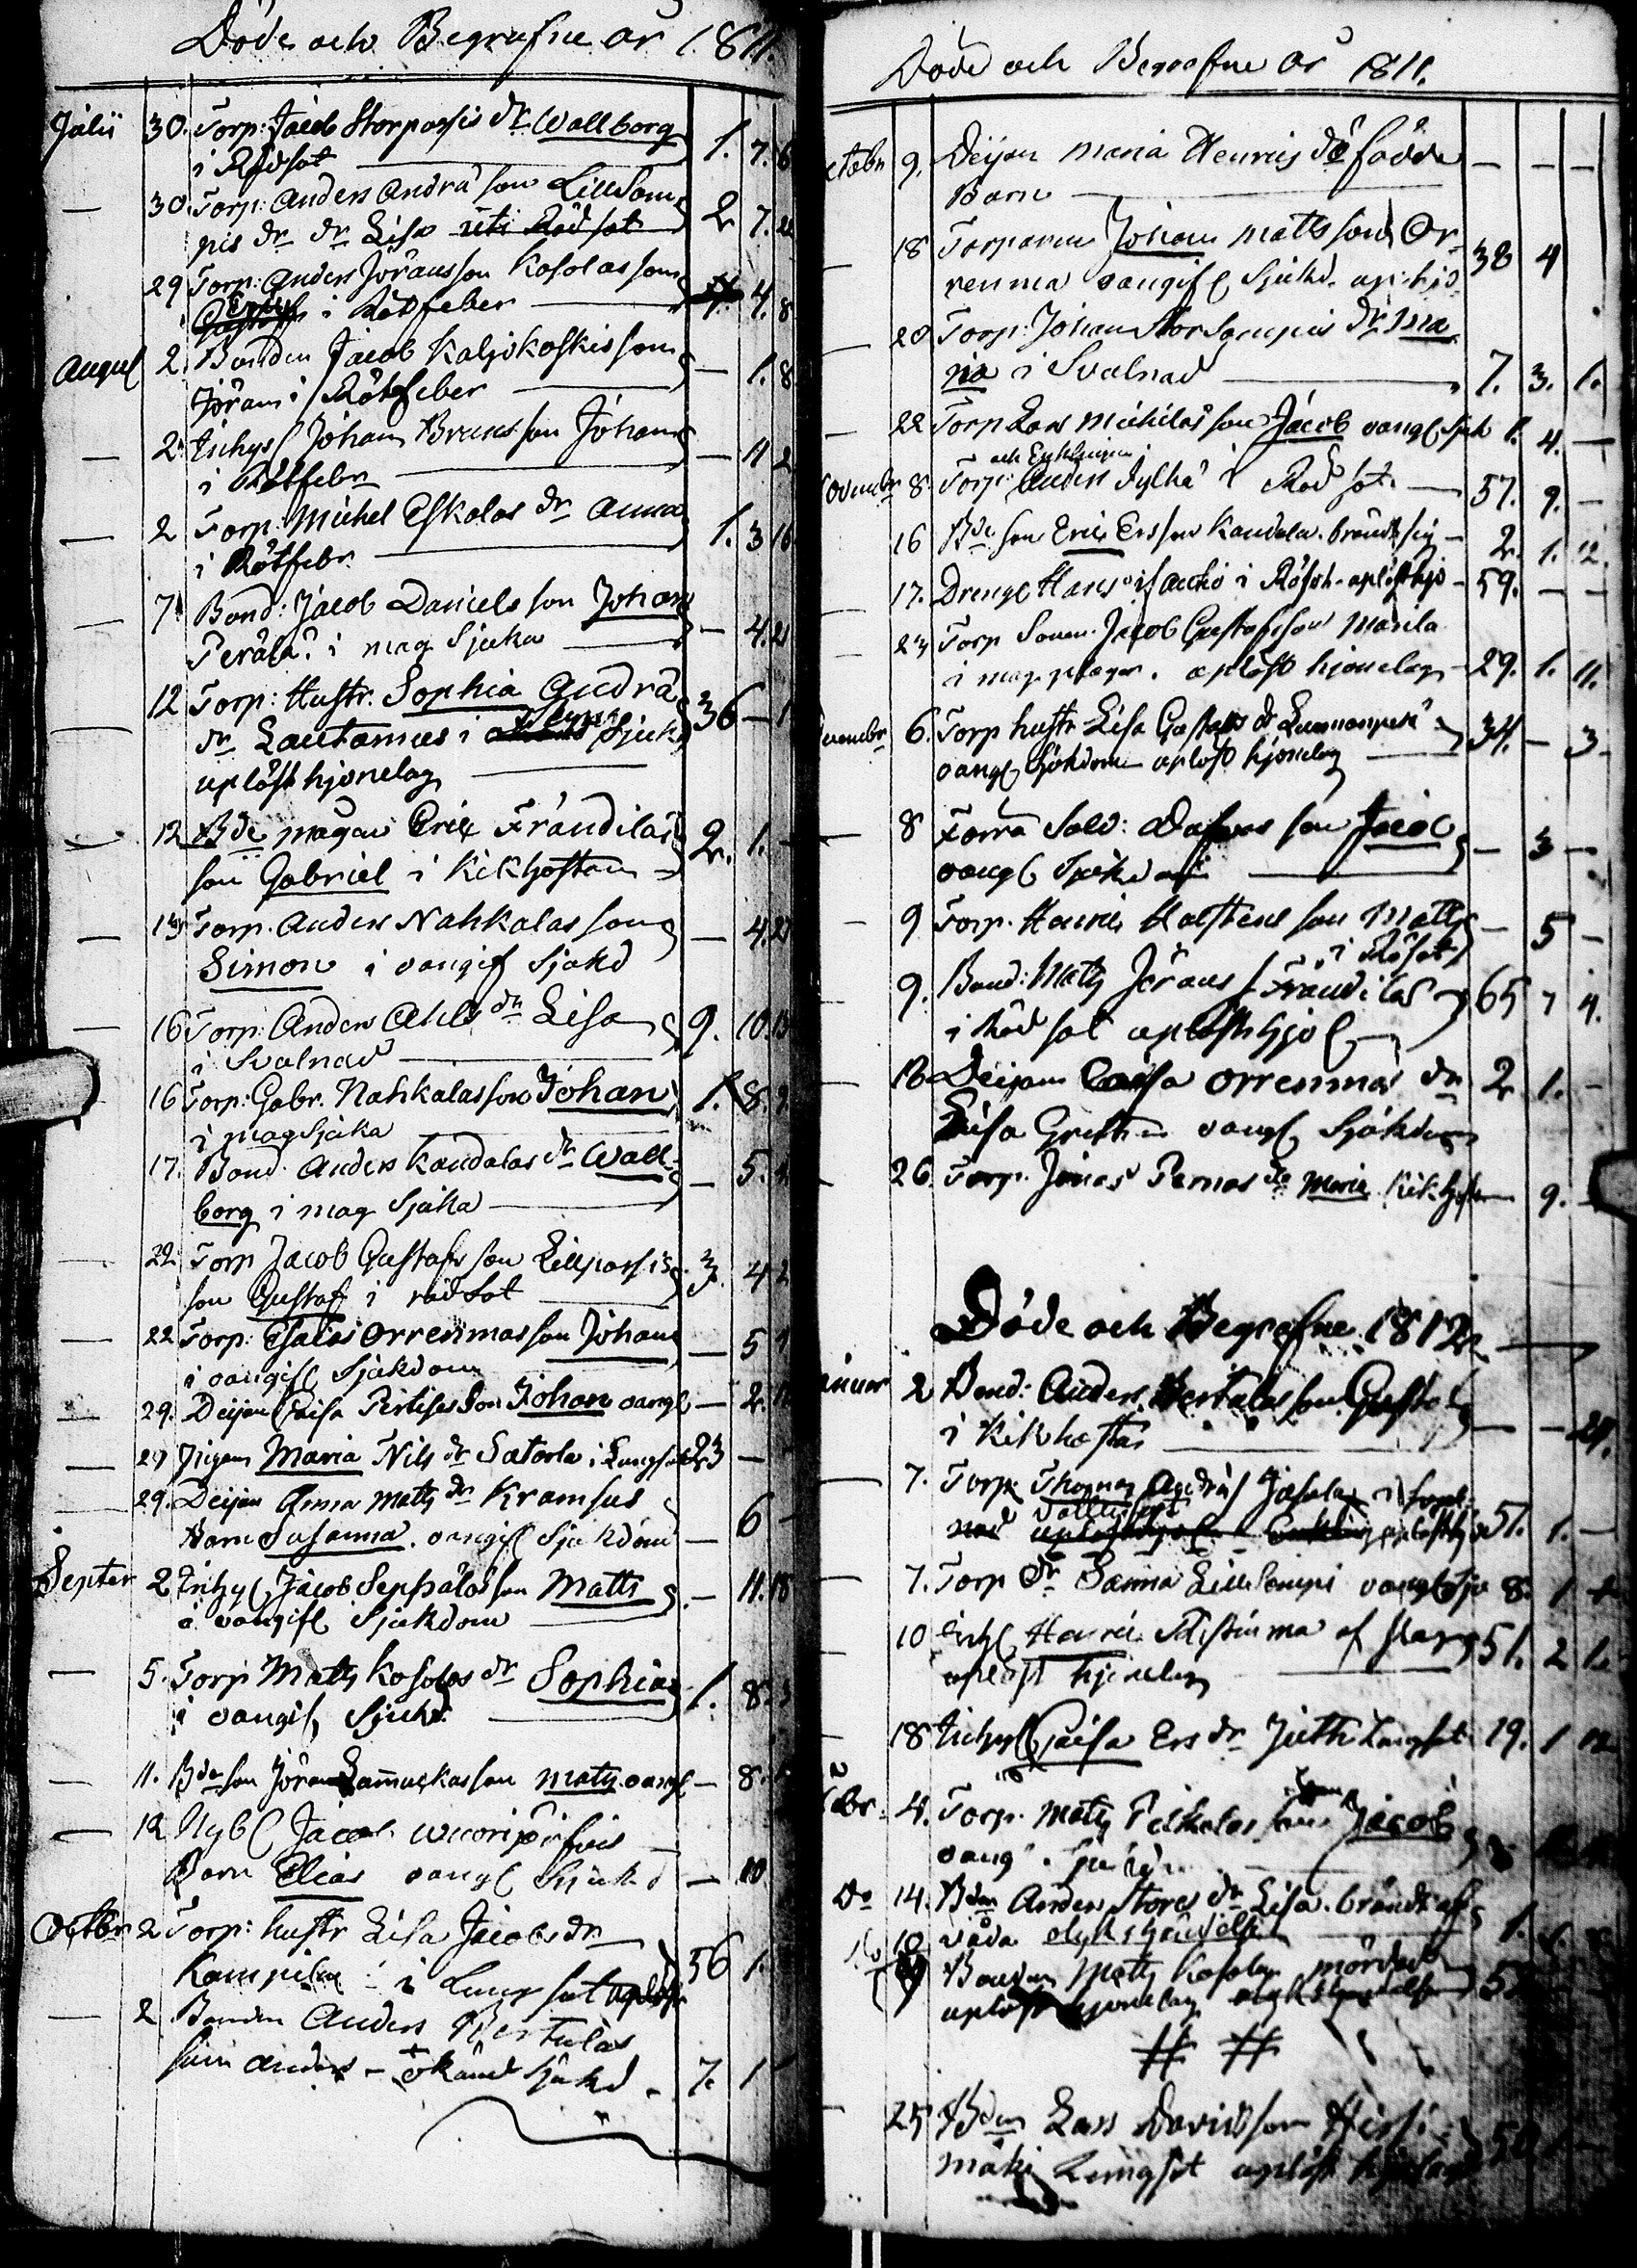 Döde och Begrafne år 1811.
Julii 30. Torp: Jacob Storpassis dr Wallborg 1. 7. 6
i Rödsot
— 30. Torp: Anders Andrä son LillSom- 2 7.
pis dr dr Lisa uti Rödsot
29 Torp: Anders Jöransson Kosolas son 4. 8
i Rötfeber
August 2. Bonden Jacob Kaljokoskis son — 1. 8
Jöran i Rötfeber
— 2. Inhys Johan Bruns son Johan — 11 2
i Rötfebr
— 2 Torp: Michel Eskolas dr Anna 1. 3 16
i Rötfebr.
— 7. Bond: Jacob Daniels son Johan — 4. 21
Perälä i mag Sjuka
— 12 Torp: Hustr. Sophia Andrä 36 — 1
dr Lautamus i Sjuk
uplöst hjonelag
— 12 Bde magen Eric Frändilas 2. 1. -
son Gabriel i Kikhostan
— 13 Torp. Anders Nahkalas son — 4. 21
Simon i oangif Sjukd
— 16 Torp: Anders Ahls dr Lisa 9. 10. 13
i Svalnad
16 Torp: Gabr. Nahkalas son Johan 1. 8. 9
i mag Sjuka
17. Bond. Anders Kandolas dr Wall- — 5.
borg i mag Sjuka
— 22 Torp Jacob Gustafs son Lillpassis 3. 4 2
son Gustaf i rödsot
— 22 Torp: Esaias Orrenmas son Johan — 5 1
i oangifl Sjukdom
— 29. Deijan Caisa Pertises Son Johan oangl — 2.
— 29 Pigan Maria Nils dr Satorla i Lungsot 23 —
29. Deijan Anna Matts dr Kramsus
Barn Susanna. oangifl Sjukdom — 6 -
Septer 2 Inhys Jacob Seppäläs son Matts — 11. 18
i oangifl Sjukdom
— 5. Torp Matts Kosolas dr Sophia 1. 8. 3
i oangifl Sjukd.
— 11. Bde son Jöran Lammaskas son Matts oangl — 8.
— 12 Nyb Jacob
Barn Elias oangl Sjukd — 10
Octbr 2 Torp: hustr Lisa Jacobs dr
Kampila i Lungsot uplöst 56 1.
— 2 Bonden Anders Rertulas
son Anders - okänd Sjukd - 7. 1
Döde och Begrafne år 1811.
ctobr 9. Deijan Maria Henrics döfödde — — —
Barn
— 18 Torparen Johan Mattsson Or- 38 4
renma oangifl Sjukd. upl. hjo-
— 20 Torp: Johan StorSompis dr Ma- 7. 3. 1.
ria i Svalnad
— 22 Torp Lars Michelas son Jacob oangl Sjuk 1. 4. —
och Enklingen
ovembr 8. Torp: Anders Jylhä i Rödsot. — 57. 9. —
16 Bde son Eric Ersson Kandola. brände sig — 2. 1. 12.
17. Dreng Hans Isackis i Rösot. uplöst hjo — 59. — —
23 Torp Sonen Jacob Gustafsson Marila
i mag plågor. uplöst hjonelag 29. 1. 11.
ecembr 6. Torp hustr Lisa Gustafs dr Lummonpeä 34. — 3.
oangl Sjukdom uplöst hjonelag
— 8 Förra Sold: son Jacob — 3 —
oangl Sjukdom
— 9 Torp. Henric Halstens son Matts — 5 —
i Rösot
9. Bond: Matts Jörans Frändilas 65 7 4.
i Rödsot uplöst hjol
— 13 Deijan Caisa Orrenmas dr 2 1. -
Lisa Greta oangl Sjukdom
26. Torp. Jonas Pernas dr Maria Kikhosta — 9.
Döde och Begrafne 1812.
anuar 2 Bond: Anders Hertulas son Gustaf — — 21.
i Kikhosta
— 7. Torp Thomas Andrä Jäsola i Sval-
nad uplöst hjo 51. 1. —
7. Torp dr Sanna LillSompi oangl Sju 8. 1
10 Inhys Henric Ristinma af slag 51. 2 1.
uplöst hjonelag
18 Inhys Caisa Ers dr Jutti Lungsot 19. 1 12
ebr. 4. Torp. Matts Peskalas son Jacob
oang Sjukdom
Do 14. Bden Anders Stores dr Lisa. brändt af 1.
våda olyks händelse
Bonden Matts Kosola mördad
uplöst hjonelag olykshändelse
# #
25 Bden Lars Davidsson Hirsi-
mäki Lungsot uplöst hjonelag 50